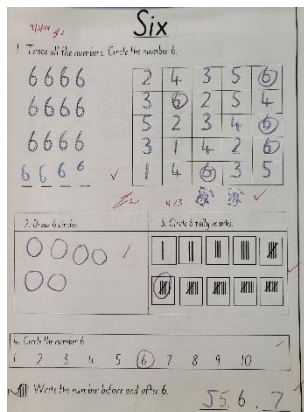 Six
1. Trace all the numbers. Circle the number 6.
6 6 6 6 2 4 3 5 6
6 6 6 6 3 6 2 5 4
6 6 6 6 5 2 3 4 6
6 6 6 6 3 1 4 2 6
1 4 6 3 5
2. Draw 6 circles.
3. Circle 6 tally marks.
4. Circle the number 6
1 2 3 4 5 6 7 8 9 10
Write the number before and after 6.
5 5. 6. 7